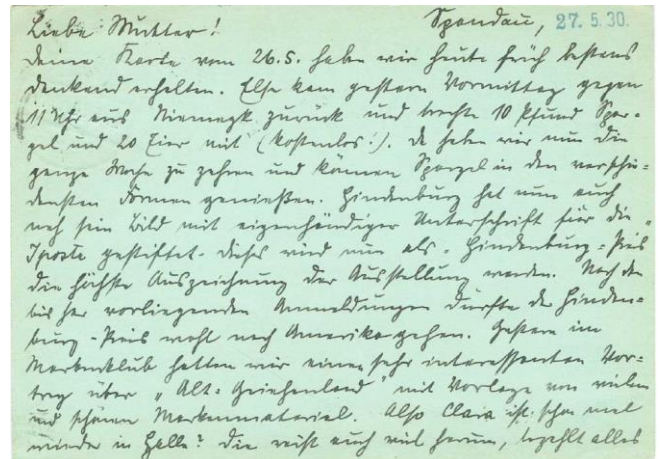 Liebe Mutter! Spandau, 27. 5. 30.
Deine Karte vom 26.5. haben wir heute früh bestens
dankend erhalten. Else kam gestern Vormittag gegen
11 Uhr aus Niemegk zurück und brachte 10 Pfund Spar-
gel und 20 Eier mit (kostenlos!). Da haben wir nun die
ganze Woche zu zehren und können Spargel in den verschie-
densten Formen genießen. Hindenburg hat nun auch
noch sein Bild mit eigenhändiger Unterschrift für die
"Iposta" gestiftet. Dieses wird nun als "Hindenburg-Preis"
die höchste Auszeichnung der Ausstellung werden. Nach den
bisher vorliegenden Anmeldungen dürfte der Hinden-
burg-Preis wohl nach Amerika gehen. Gestern im
Markenklub hatten wir einen sehr interessanten Vor-
trag über "Alt-Griechenland" mit Vorlage von vielen
und schönen Markenmaterial. Also Clara ist schon mal
wieder in Halle? Die reist auch viel herum, bezahlt alles